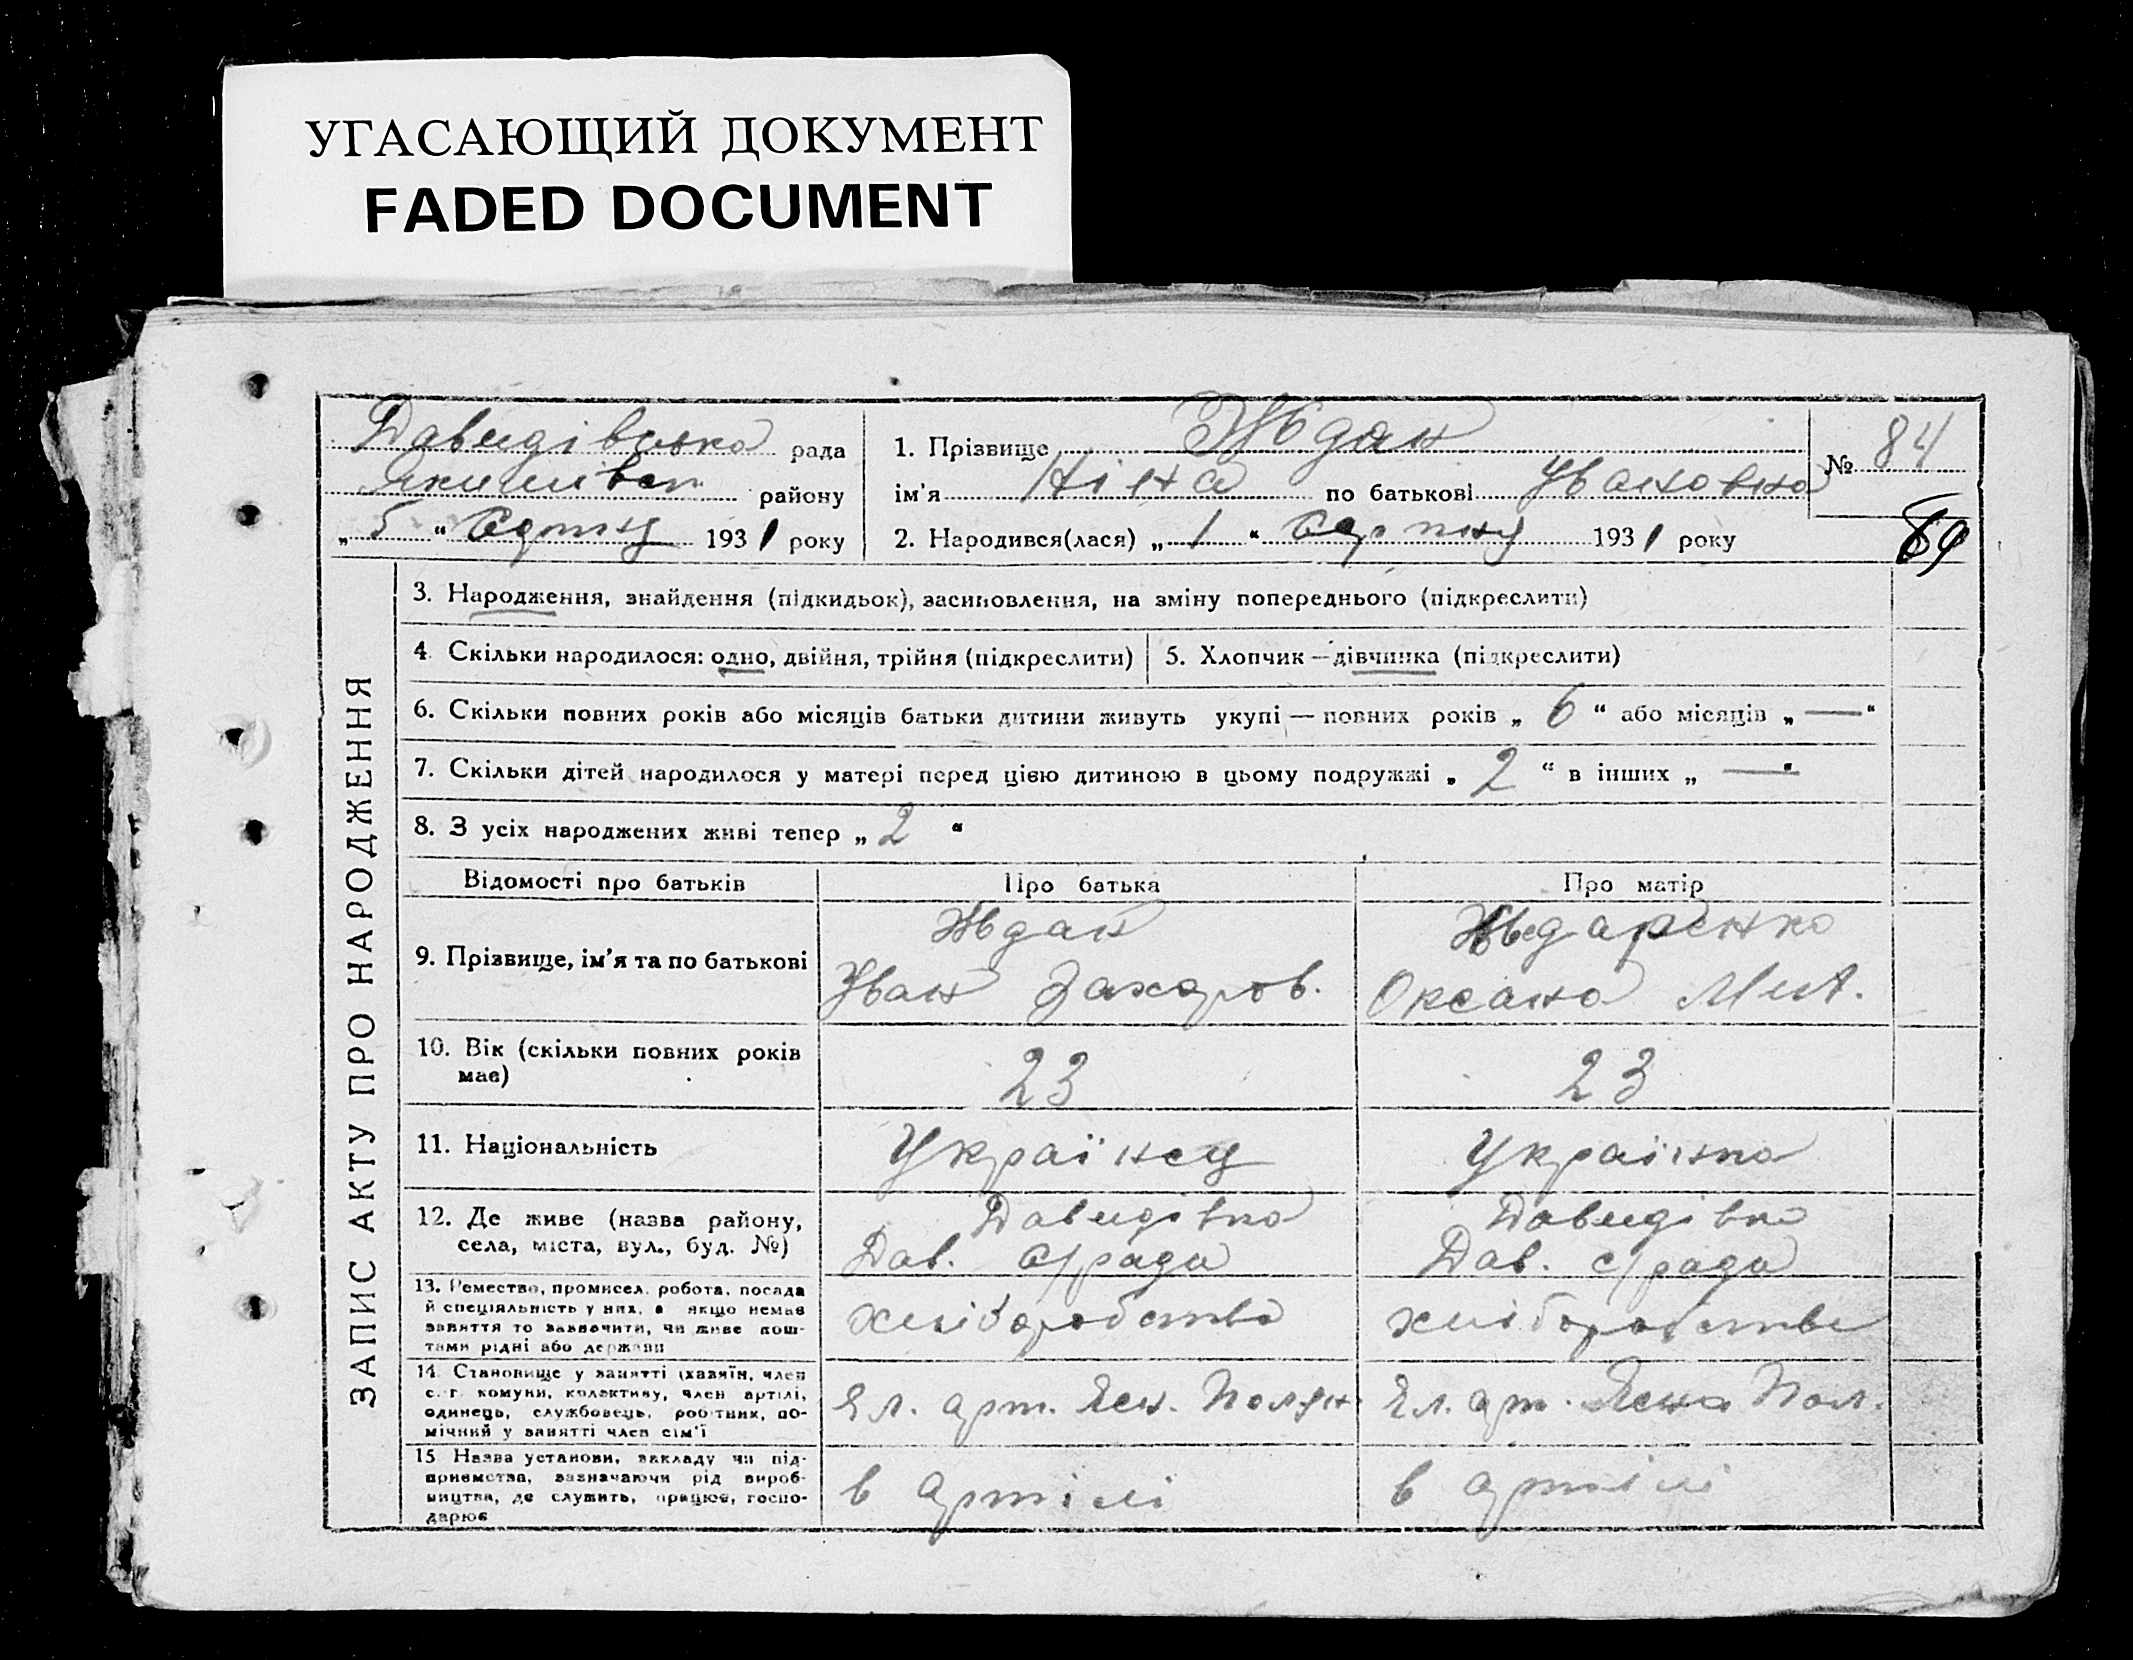 УГАСАЮЩИЙ ДОКУМЕНТ
FADED DOCUMENT
Давидівська рада
району
„ 5 " Серпня 1931 року
1. Прізвище Ждан
ім'я Ніна по батькові Ивановна
2. Народився(лася) „ 1 " Серпня 1931 року
№ 84
89
ЗАПИС АКТУ ПРО НАРОДЖЕННЯ
3. Народження, знайдення (підкидьок), засиновлення, на зміну попереднього (підкреслити)
4. Скільки народилося: одно, двійня, трійня (підкреслити)
5. Хлопчик — дівчинка (підкреслити)
6. Скільки повних років або місяців батьки дитини живуть укупі — повних років „ 6 " або місяців „ — "
7. Скільки дітей народилося у матері перед цією дитиною в цьому подружжі „ 2 " в інших „ — "
8. З усіх народжених живі тепер „ 2 "
Відомості про батьків Про батька Про матір
9. Прізвище, ім'я та по батькові
Ждан
Иван Захаров.
Оксана
10. Вік (скільки повних років
має)
23
23
11. Національність
Українец
Українка
12. Де живе (назва району,
села, міста, вул., буд. №)
Давидівка
Дав. с/рада
Давидівка
Дав. с/рада
13. Ремество, промисел, робота, посада
й спеціяльність у них, а якщо немає
заняття то зазначити, чи живе кош-
тами рідні або держави
хліборобство
хліборобство
14. Становище у занятті (хазяїн, член
с.-г. комуни, колективу, член артілі,
одинець, службовець, робітник, по-
мічний у занятті член сім'ї
Чл. арт. Ясн. Полян.
Чл. арт. Ясна Пол.
15 Назва установи, закладу чи під-
приємства, зазначаючи рід вироб-
ництва, де служить, працює, госпо-
дарює
в артілі
в артілі